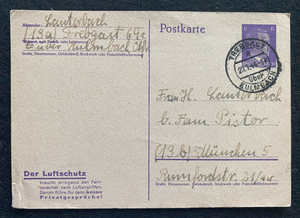 Postkarte
Absender: Lauterbach
(13a) Trebgast 69a
über Kulmbach
Straße, Hausnummer, Gebäudeteil, Stockwerk oder Postschließfachnummer
TREBGAST
über
KULMBACH
6
Frau H. Lauterbach
b. Fam. Pistor
(13b) München 5
Rumfordstr.
Straße, Hausnummer, Gebäudeteil, Stockwerk oder Postschließfachnummer
Der Luftschutz
braucht dringend den Fern-
sprecher nach Luftangriffen.
Darum führe Du dann keine
Privatgespräche!